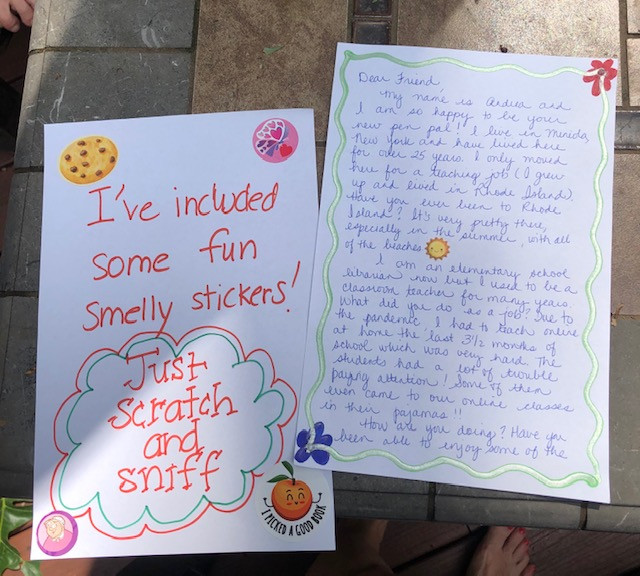 I've included
some fun
smelly stickers!
Just
scratch
and
sniff
I PICKED A GOOD BOOK
Dear Friend
My name is Andrea and
I am so happy to be your
new pen pal! I live in
New York and have lived here
for over 25 years. I only moved
here for a teaching job (I grew
up and lived in Rhode Island).
Have you ever been to Rhode
Island? It's very pretty there,
especially in the summer, with all
of the beaches
I am an elementary school
librarian now but I used to be a
classroom teacher for many years.
What did you do as a job? Due to
the pandemic, I had to teach online
at home the last 3 1/2 months of
school which was very hard. The
students had a lot of trouble
paying attention! Some of them
even came to our online classes
in their pajamas!!
How are you doing? Have you
been able to enjoy some of the